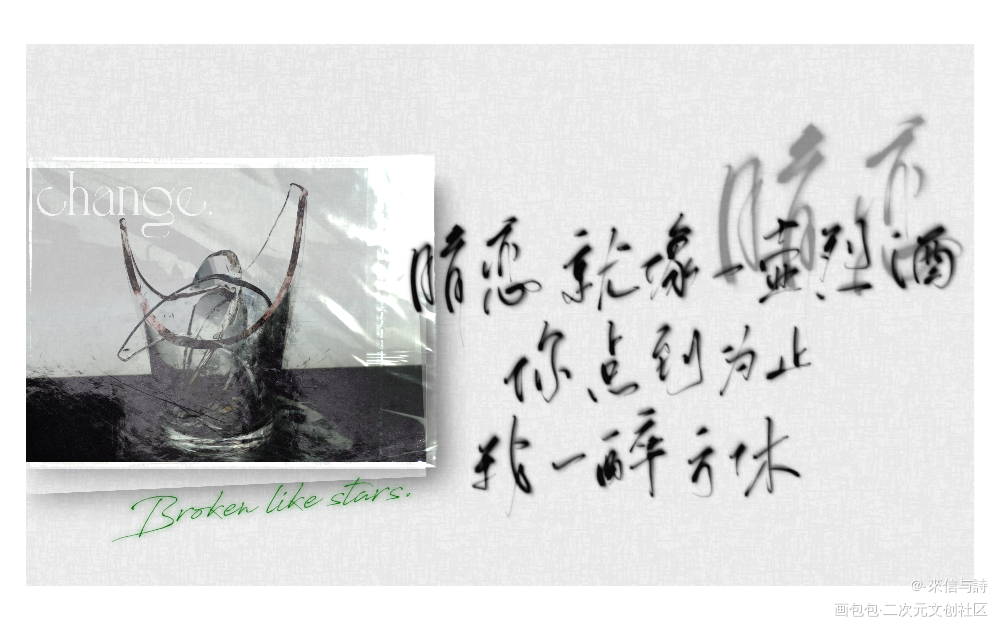 change.
暗恋
暗恋就像一壶烈酒
你点到为止
我一醉方休
Broken like stars.
@-來信与詩
画包包·二次元文创社区